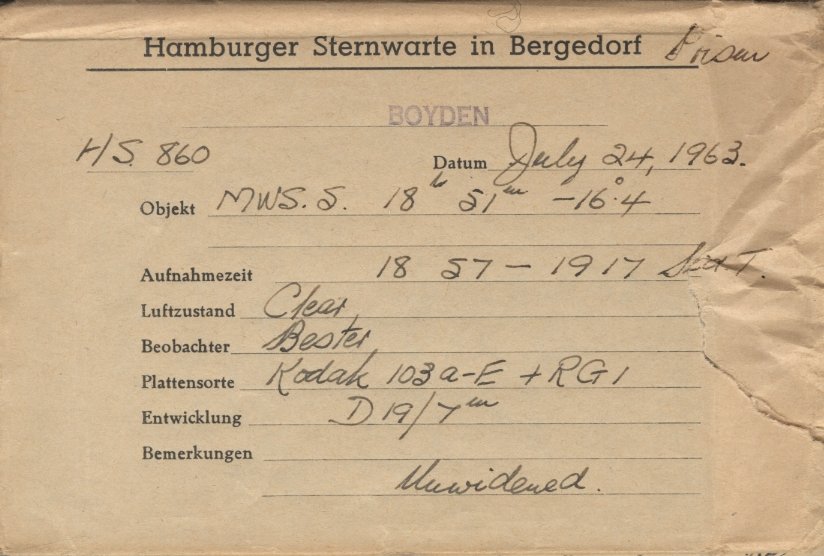 Hamburger Sternwarte in Bergedorf Prism
BOYDEN
HS. 860 Datum July 24, 1963.
Objekt MWS. S. 18h 51m -16°.4
Aufnahmezeit 18 57 - 19 17 Sid T.
Luftzustand Clear
Beobachter Bester
Plattensorte Kodak 103a-E + RG1
Entwicklung D19/7m
Bemerkungen
Unwidened.